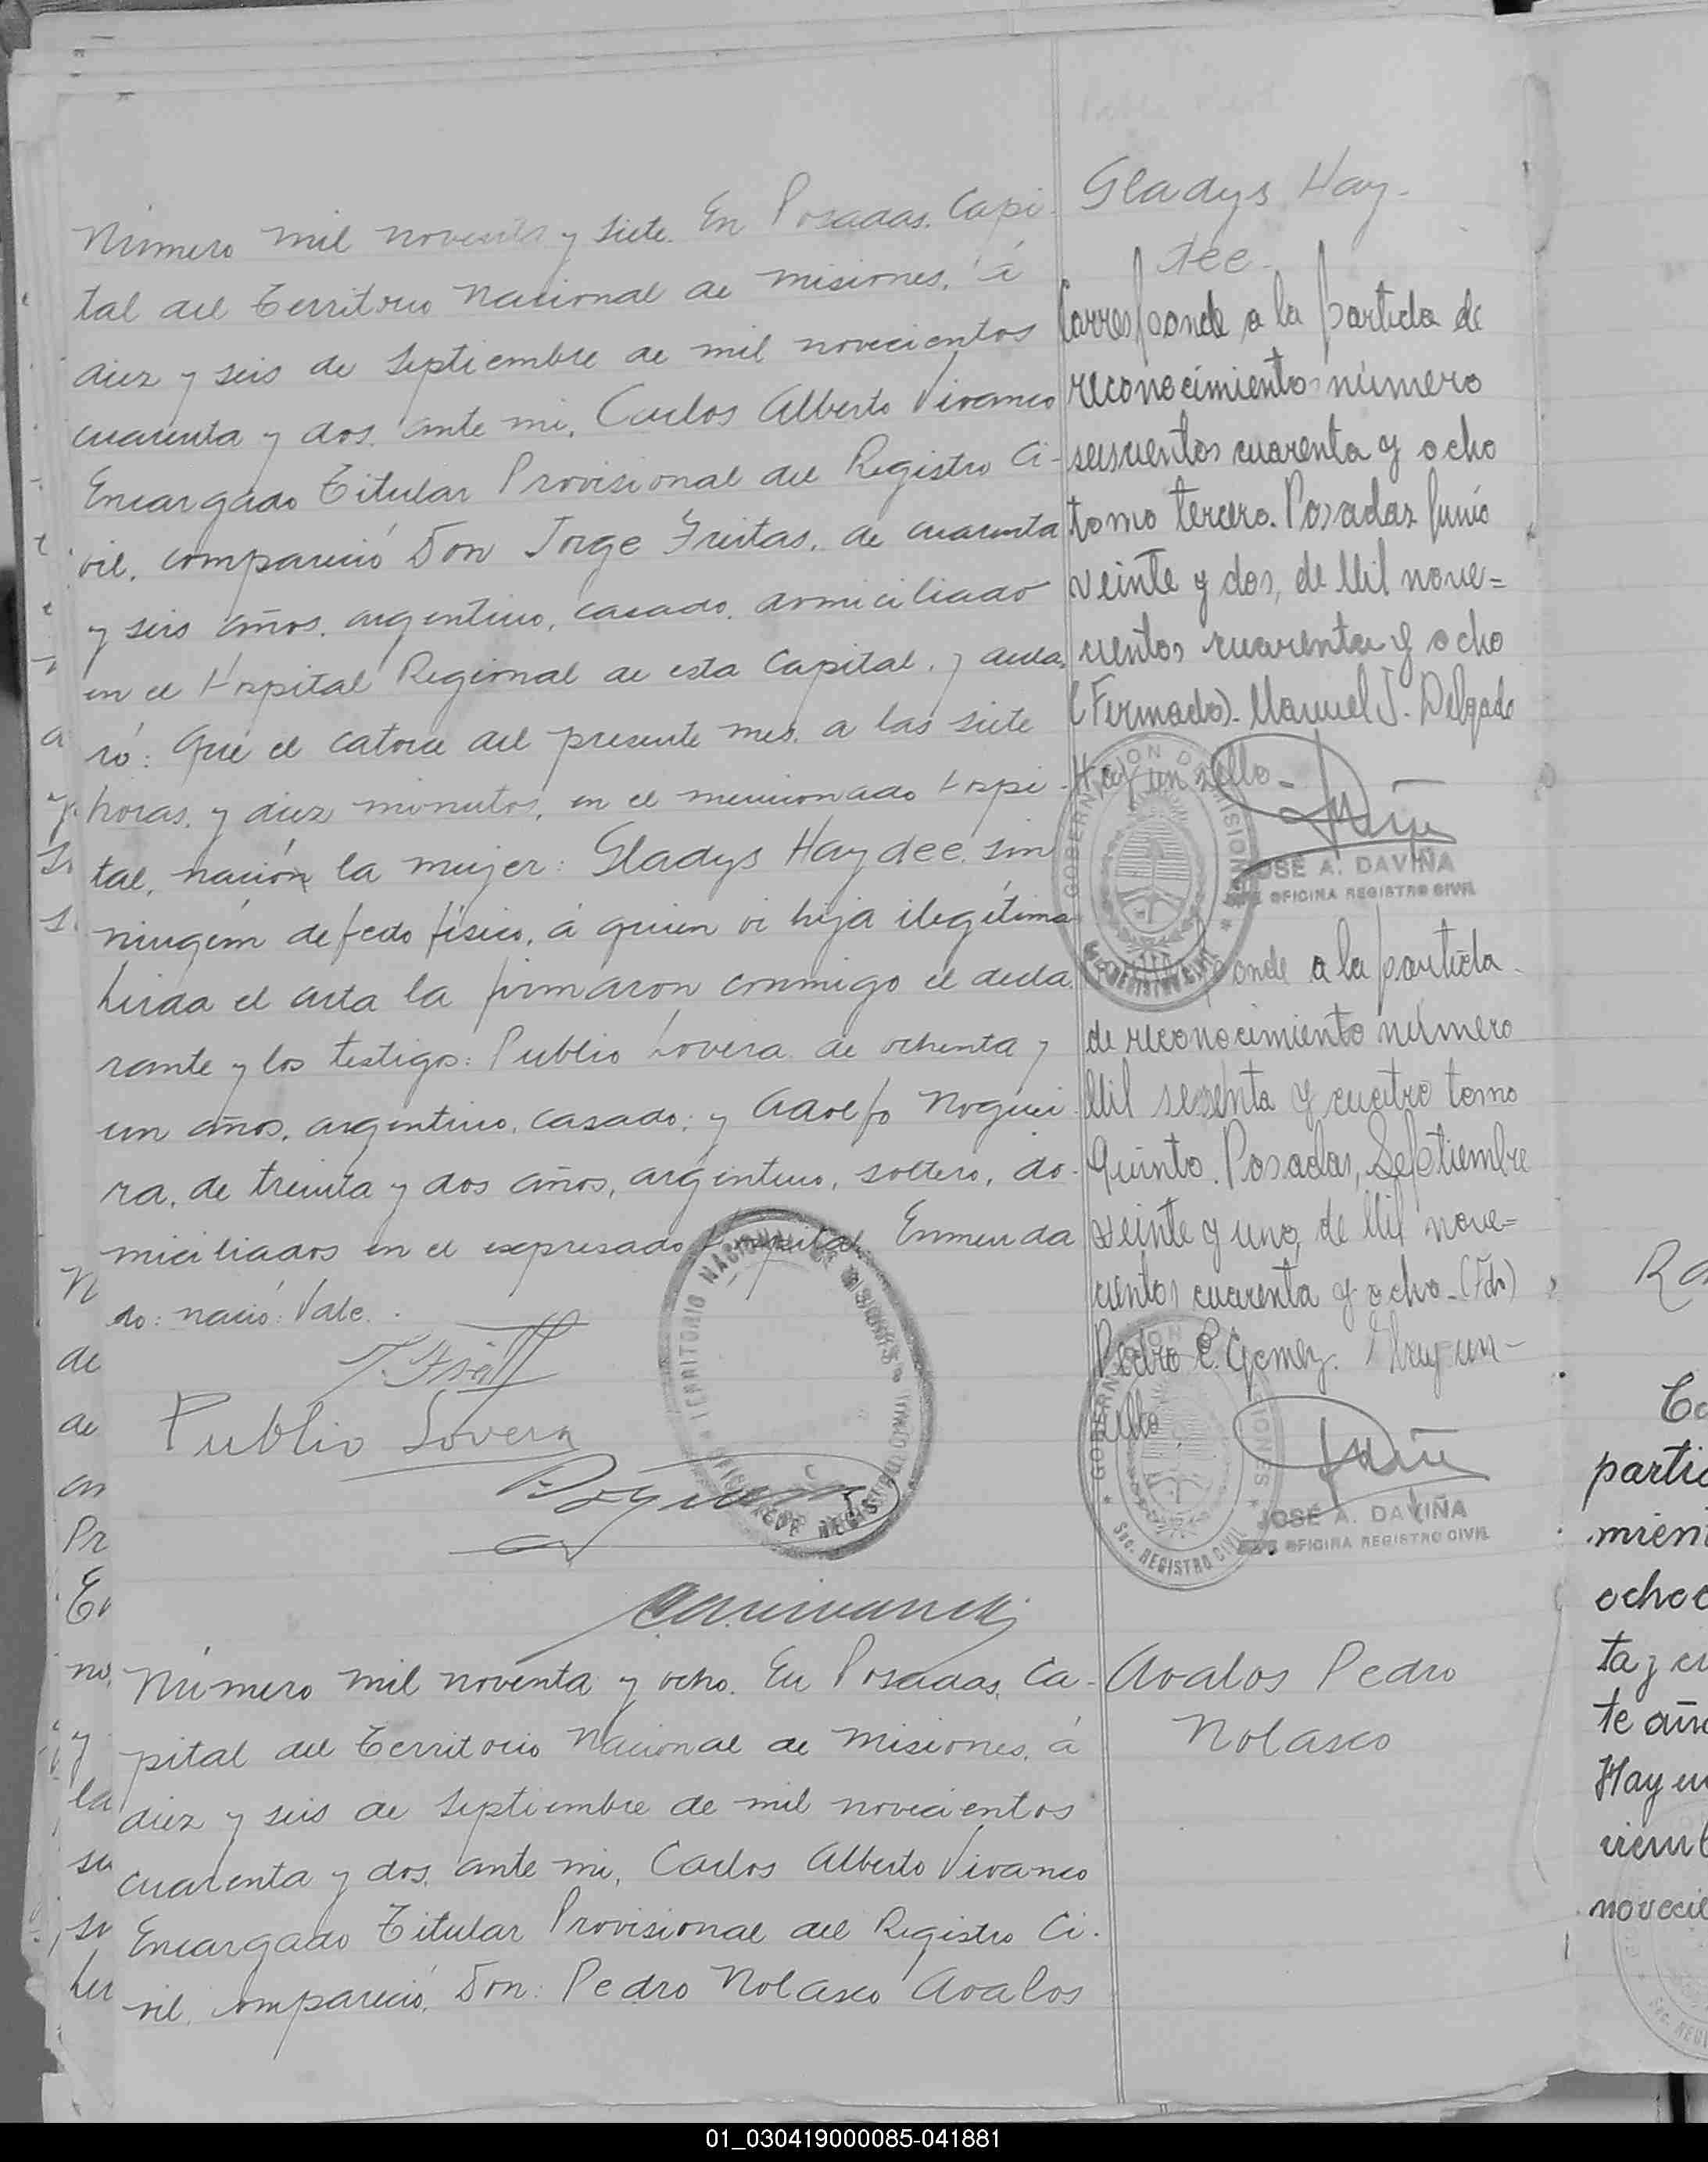 Número mil noventa y siete. En Posadas, Capi-
tal del Territorio Nacional de Misiones, á
diez y seis de Septiembre de mil novecientos
cuarenta y dos, ante mi, Carlos Alberto Vivanco
Encargado Titular Provisional del Registro Ci-
vil, compareció Don Jorge Freitas, de cuarenta
y seis años, argentino, casado, domiciliado
en el Hospital Regional de esta Capital, y decla,
ró: Que el catorce del presente mes, a las siete
horas, y diez minutos, en el mencionado Hospi-
tal, nación la mujer: Gladys Haydee, sin
ningún defecto físico, á quien vi hija ilegítima
Leida el acta la firmaron conmigo el decla.
rante y los testigos: Publio Lovera de ochenta y
un años, argentino, casado; y Adolfo Noguei-
ra, de treinta y dos años, argentino, soltero, do-
miciliados en el expresado Hospital. Enmenda
do: nació: Vale.
Publio Lovera
TERRITORIO NACIONAL DE MISIONES
Gladys Hay-
dee.
Corresponde a la partida de
reconocimiento número
seiscientos cuarenta y ocho
tomo tercero. Posadas Junio
veinte y dos, de Mil nove=
cientos cuarenta y ocho
(Firmado). Manuel J. Delgado
Hay un sello -
GOBERNACION DE MISIONES
SEC. REGISTRO CIVIL
JOSÉ A. DAVIÑA
JEFE OFICINA REGISTRO CIVIL
ponde a la partida
de reconocimiento número
Mil sesenta y cuatro tomo
Quinto. Posadas, Septiembre
veinte y uno, de Mil nove=
cientos cuarenta y ocho - (Fdo)
Pedro E. Gomez. Hay un -
sello
GOBERNACION DE MISIONES
SEC. REGISTRO CIVIL
JOSÉ A. DAVIÑA
JEFE OFICINA REGISTRO CIVIL
Número mil noventa y ocho. En Posadas, Ca-
pital del Territorio Nacional de Misiones, á
diez y seis de Septiembre de mil novecientos
cuarenta y dos, ante mi, Carlos Alberto Vivanco
Encargado Titular Provisional del Registro Ci-
vil, compareció, Don: Pedro Nolasco Avalos
Avalos Pedro
Nolasco
N
de
de
Pr
no,
y
la
su
Ra
Co
partid
mient
ocho
ta y
te añ
Hay un
novecie
01_030419000085-041881